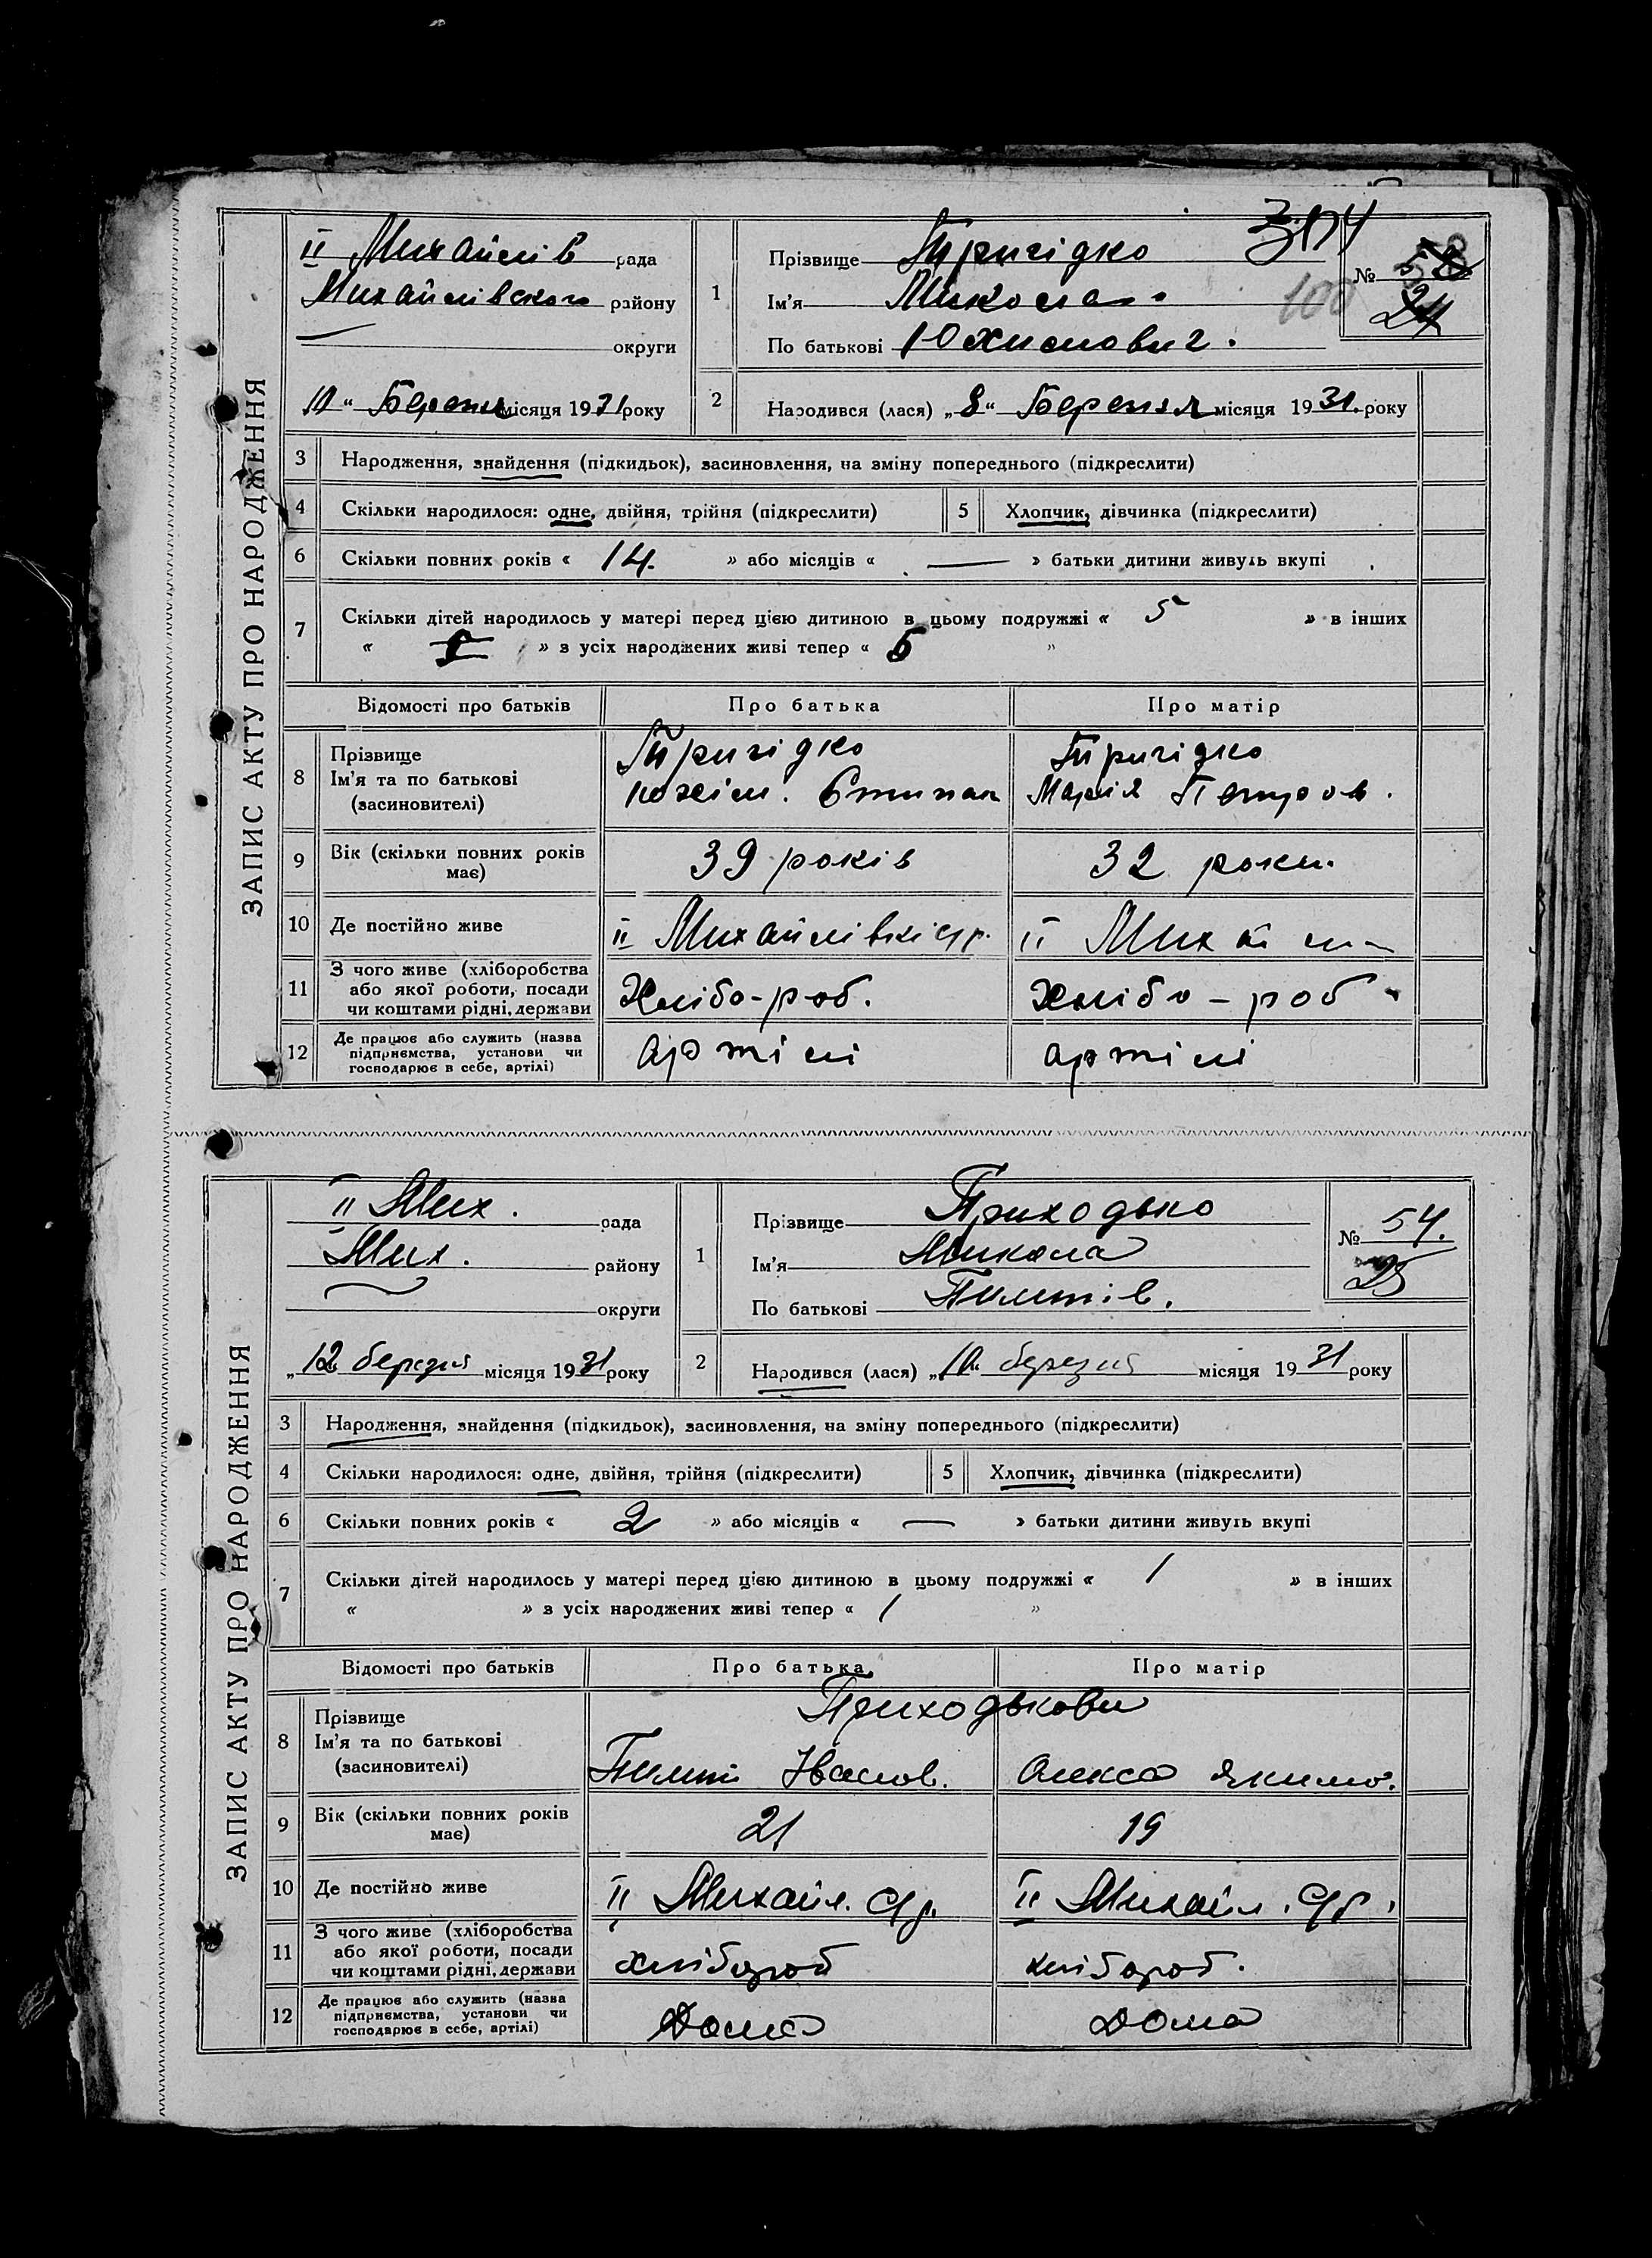 ЗАПИС АКТУ ПРО НАРОДЖЕННЯ
II Михайлів рада
Михайлівського району
— округи
10 " Березня місяця 1931 року
1
Прізвище Пригідко
Ім'я Микола
По батькові Юхимович.
100
№ 53
24
2 Народився (лася) „8“ Березня місяця 1931 року
3 Народження, знайдення (підкидьок), засиновлення, на зміну попереднього (підкреслити)
4 Скільки народилося: одне, двійня, трійня (підкреслити) 5 Хлопчик, дівчинка (підкреслити)
6 Скільки повних років « 14. » або місяців « — » батьки дитини живуть вкупі
7 Скільки дітей народилось у матері перед цією дитиною в цьому подружжі « 5 » в інших
« » з усіх народжених живі тепер « 5 »
Відомості про батьків Про батька Про матір
8 Прізвище
Ім'я та по батькові
(засиновителі)
Пригідко
Юхим. Степан
Пригідко
Марія Петров.
9 Вік (скільки повних років
має)
39 років 32 роки.
10 Де постійно живе II Михайлівкі с/р. II Михай
11 З чого живе (хліборобства
або якої роботи, посади
чи коштами рідні, держави
Хлібо-роб. Хлібо-роб
12 Де працює або служить (назва
підприємства, установи чи
господарює в себе, артілі)
артілі артілі
ЗАПИС АКТУ ПРО НАРОДЖЕННЯ
II Мих. рада
Мих. району
округи
„12 березня місяця 1931 року
1
Прізвище Приходько
Ім'я Микола
По батькові Пилипів.
№ 54.
25
2 Народився (лася) „10 березня місяця 1931 року
3 Народження, знайдення (підкидьок), засиновлення, на зміну попереднього (підкреслити)
4 Скільки народилося: одне, двійня, трійня (підкреслити) 5 Хлопчик, дівчинка (підкреслити)
6 Скільки повних років « 2 » або місяців « — » батьки дитини живуть вкупі
7 Скільки дітей народилось у матері перед цією дитиною в цьому подружжі « 1 » в інших
« » з усіх народжених живі тепер « 1 »
Відомості про батьків Про батька Про матір
Приходькови
8 Прізвище
Ім'я та по батькові
(засиновителі)
Пилип Іванов. Олекса Якимо.
9 Вік (скільки повних років
має)
21 19
10 Де постійно живе II Михайл. С/р. II Михайл. С/р.
11 З чого живе (хліборобства
або якої роботи, посади
чи коштами рідні, держави
хлібороб хлібороб.
12 Де працює або служить (назва
підприємства, установи чи
господарює в себе, артілі)
Дома Дома